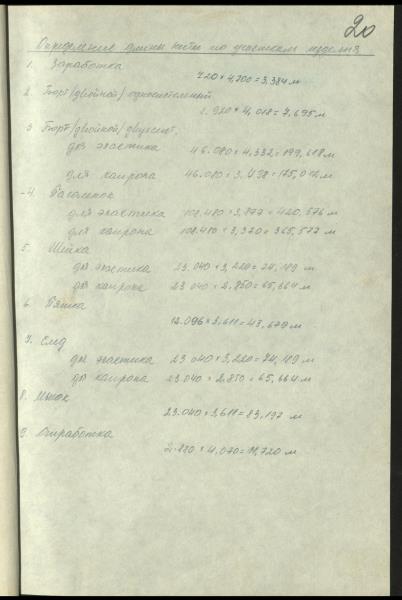 20
Определение длины нити по участкам изделия
1. Заработка
720 × 4,700 = 3,384 м
2. Борт /двойной/ односистемный
1.920 × 4,018 = 7,695 м
3. Борт /двойной/ двухсист.
для эластика 46.080 × 4,332 = 199,618 м
для капрона 46.080 × 3,798 = 175,012 м
4. Паголенок
для эластика 108.480 × 3,877 = 420,576 м
для капрона 108.480 × 3,370 = 365,577 м
5. Шейка
для эластика 23.040 × 3,220 = 74,189 м
для капрона 23.040 × 2,850 = 65,664 м
6. Пятка
12.096 × 3,611 = 43,679 м
7. След
для эластика 23.040 × 3,220 = 74,189 м
для капрона 23.040 × 2,850 = 65,664 м
8. Мысок
23.040 × 3,611 = 83,197 м
9. Отработка
2.880 × 4,070 = 11,720 м